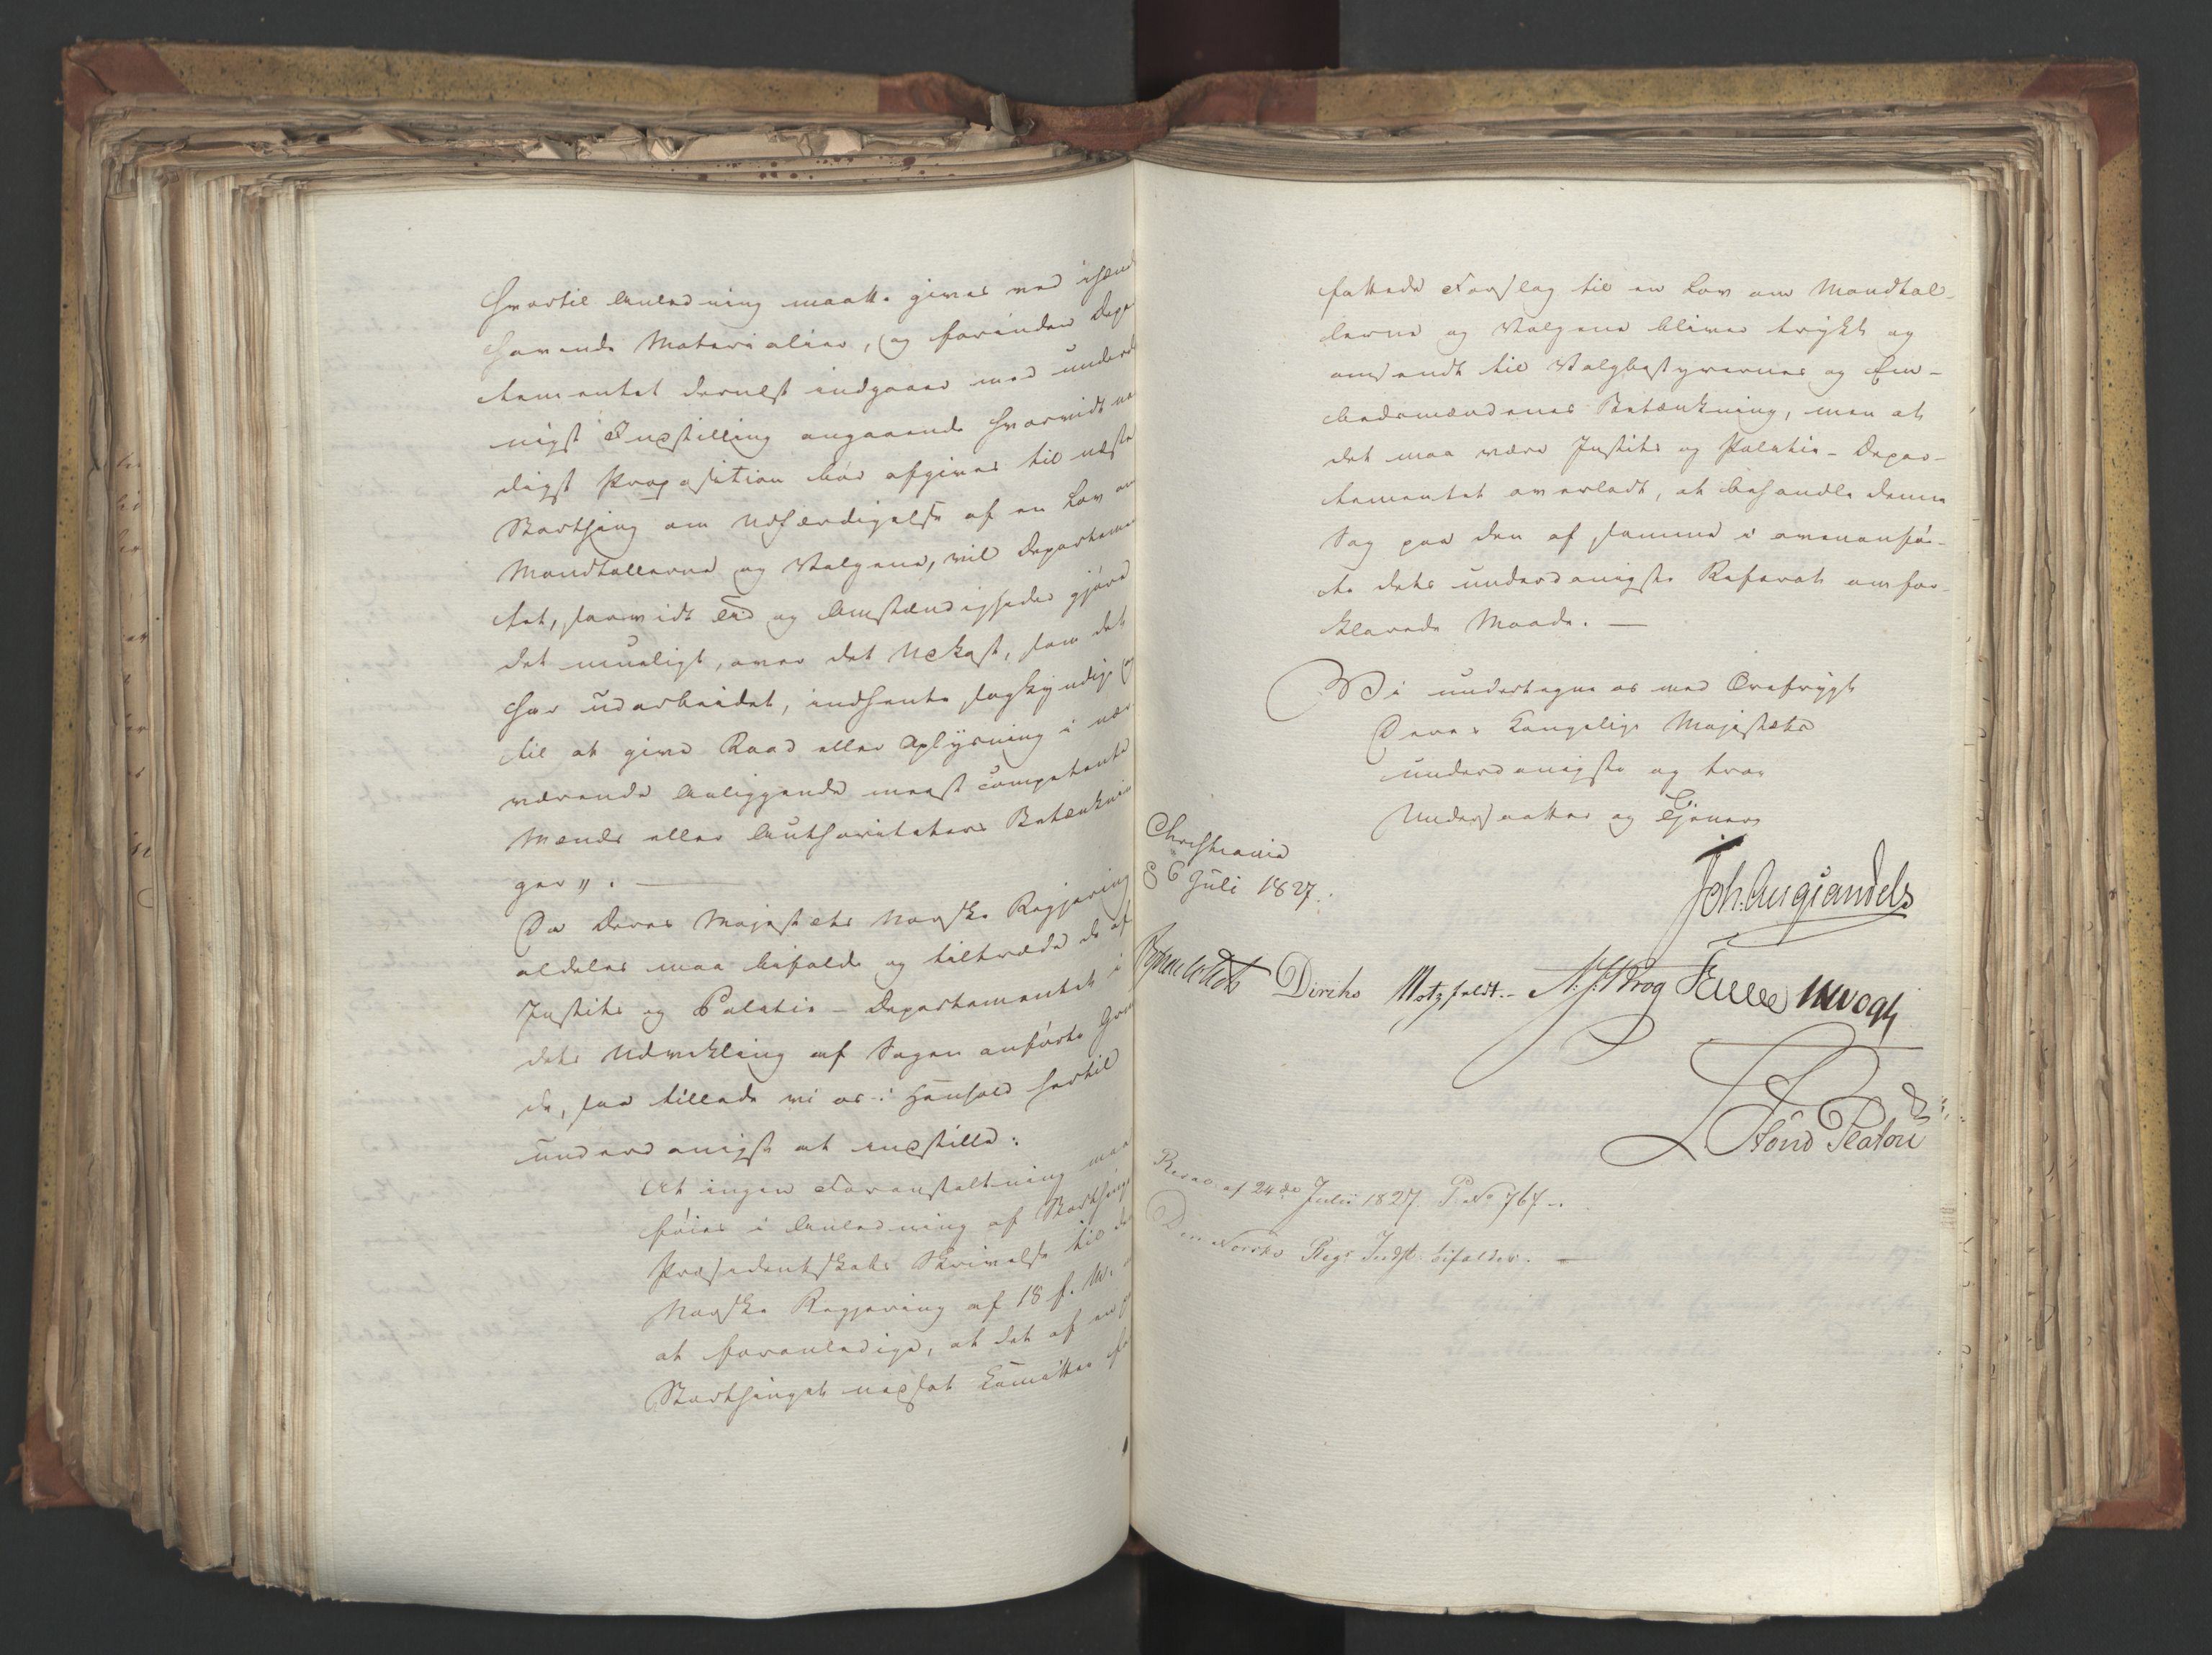 hvortil Anledning maatte gives ved ihænd
havende Materialier, og forinden Depar
tementet dernæst indgaaer med underd
nigst Indstilling angaaende hvorvidt na
digst Proposition bør afgives til næste
Storthing om Udfærdigelse af en Lov om
Mandtallerne og Valgene, vil Departemen
tet, saavidt Tid og Omstændigheder gjøre
det mueligt, over det Udkast, som det
har udarbeidet, indhente sagkyndige og
til at give Raad eller Oplysning i nær
værende Anliggende meest competente
Mænds eller Authoriteters Betænknin
ger". —
Da Deres Majestæts Norske Regjering
aldeles maa bifalde og tiltræde de af
Justits og Politie-Departementet i
dets Udvikling af Sagen anførte Grun
de, saa tillade vi os i Henhold hertil
underdanigst at indstille:
At ingen Foranstaltning maa
føies i Anledning af Storthings
Præsidentskabs Skrivelse til den
Norske Regjering af 18 f. M.
at foranledige, at det af en paa
Storthinget nedsat Komittee for
fattede Forslag til en Lov om Mandtal-
lerne og Valgene bliver trykt og
omsendt til Valgbestyrernes og Em-
bedsmændenes Betænkning, men at
det maa være Justits og Politie-Depar-
tementet overladt, at behandle denne
Sag paa den af samme i ovenanfør-
te dets underdanigste Referat omfor-
klarede Maade. —
Vi undertegne os med Ærefrygt
Deres Kongelige Majestæts
underdanigste og troe
Undersaatter og Tjenere
Christiania
d 6 Juli 1827.
Joh. Aug Sandels
Diriks Motzfeldt.- N. J. Krog JCollett
Jonas Platou
Resol. af 24de Julii 1827. P. No 764-.
Den Norske Regs Indst. bifaldes. —